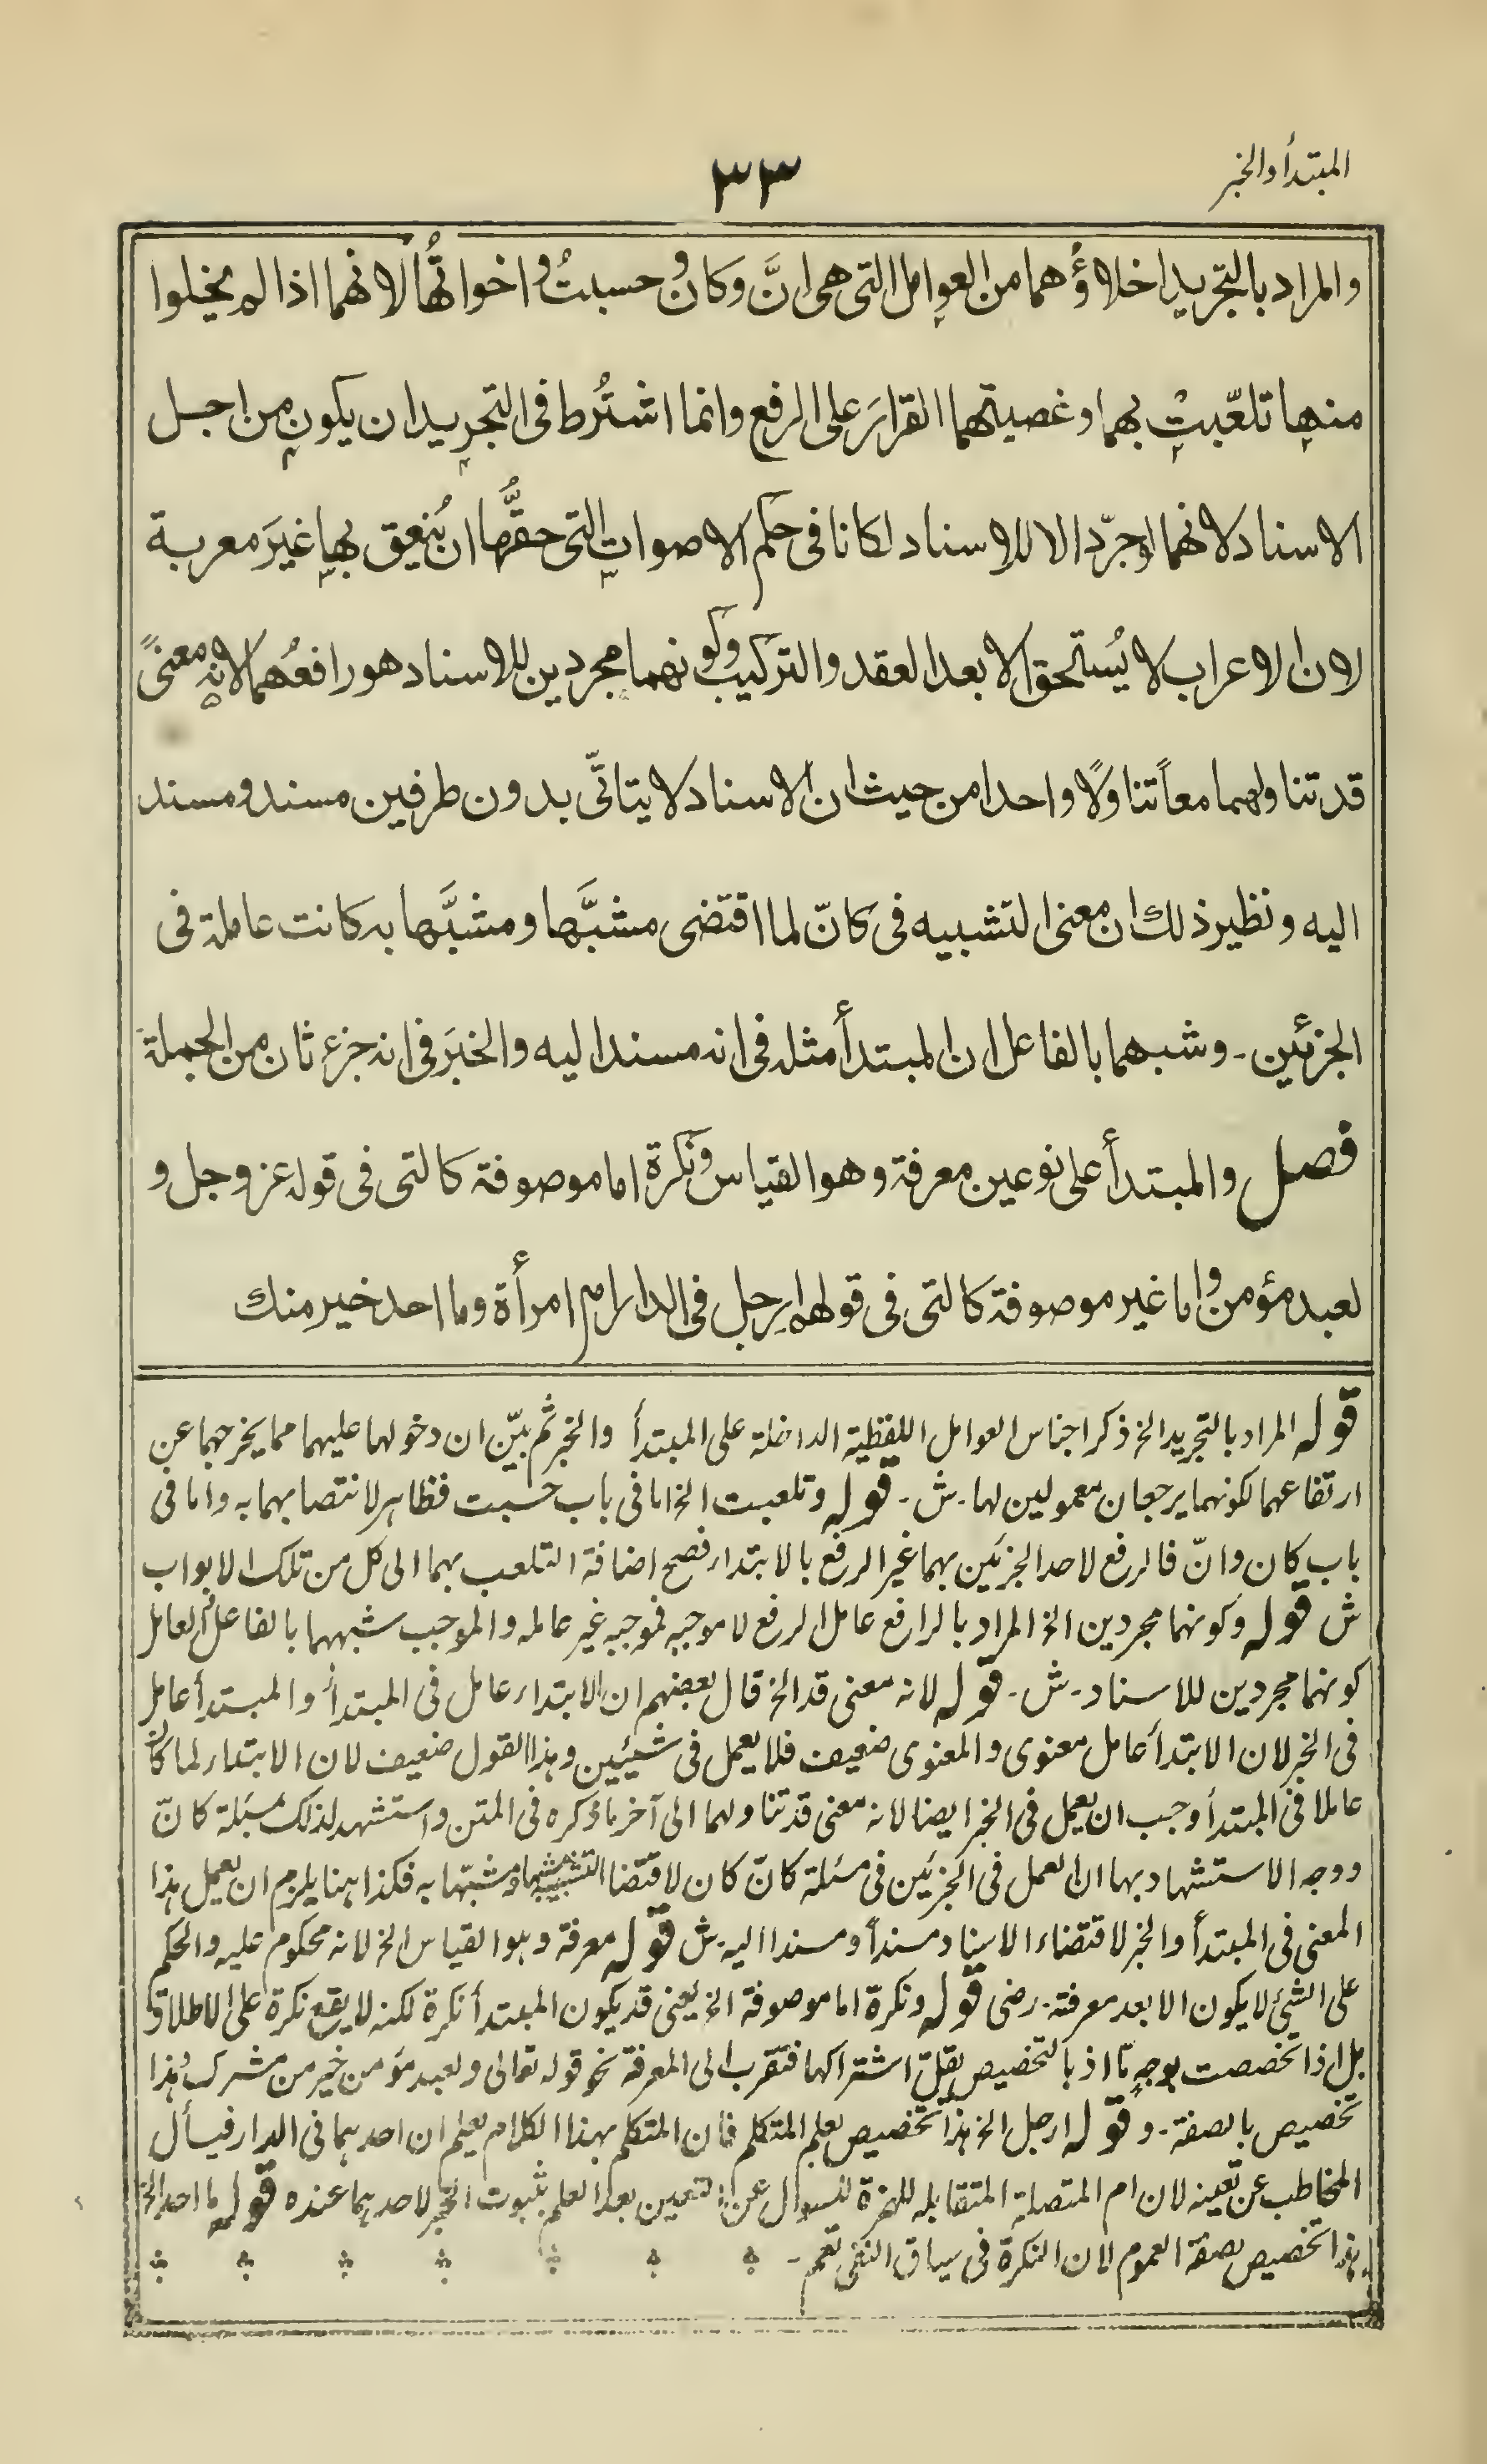 المبتدأ والخبر
٣٣
والمراد بالتجريد اخلاؤهما من العوامل التى هى انَّ وكان وحسبتُ واخواتُها لانهما اذا لم يخلوا
منها تلعّبتْ بهما وغصبتهما القرارَ على الرفع وانما اشتُرط فى التجريد ان يكون من اجل
الاسناد لانهما لو جرّدا لا للاسناد لكانا فى حكم الاصوات التى حقُّها ان يُنعق بها غيرَ معربة
لان الاعراب لا يُستحق الا بعد العقد والتركيب وكونهما مجردين للاسناد هو رافعُهما لانه معنىً
قد تناولهما معاً تناولًا واحدا من حيث ان الاسناد لا يتاتّى بدون طرفين مسند ومسند
اليه ونظير ذلك ان معنى التشبيه فى كانّ لما اقتضى مشبَّها ومشبَّها به كانت عاملة فى
الجزئين ـ وشبههما بالفاعل ان المبتدأ مثله فى انه مسند اليه والخبرَ فى انه جزء ثان من الجملة
فصل والمبتدأ على نوعين معرفة وهو القياس ونكرة اما موصوفة كالتى فى قوله عز وجل و
لعبد مؤمن واما غير موصوفة كالتى فى قولهم ارجل فى الدار ام امرأة وما احد خير منك
قوله المراد بالتجريد الخ ذكر اجناس العوامل اللفظية الداخلة على المبتدأ والخبر ثم بيّن ان دخولها عليهما مما يخرجهما عن
ارتفاعهما لكونهما يرجعان معمولين لها ـ ش ـ قوله وتلعبت الخ اما فى باب حسبت فظاهر لانتصابهما به واما فى
باب كان وانّ فالرفع لاحد الجزئين بهما غير الرفع بالابتداء فصح اضافة التلعب بهما الى كل من تلك الابواب
ش قوله وكونهما مجردين الخ المراد بالرافع عامل الرفع لا موجبه فموجبه غير عامله والموجب شبههما بالفاعل والعامل
كونهما مجردين للاسناد ـ ش ـ قوله لانه معنى قد الخ قال بعضهم ان الابتداء عامل فى المبتدأ والمبتدأ عامل
فى الخبر لان الابتدأ عامل معنوى والمعنوى ضعيف فلا يعمل فى شيئين وهذا القول ضعيف لان الابتداء لما كان
عاملا فى المبتدأ وجب ان يعمل فى الخبر ايضا لانه معنى قد تناولهما الى آخر ما ذكره فى المتن واستشهد لذلك بمسئلة كانّ
ووجه الاستشهاد بها ان العمل فى الجزئين فى مسئلة كانّ كان لاقتضا التشبيه مشبها ومشبّها به فكذا ههنا يلزم ان يعمل هذا
المعنى فى المبتدأ والخبر لاقتضاء الاسناد مسنداً ومسندا اليه ـ ش قوله معرفة وهو القياس الخ لانه محكوم عليه والحكم
على الشئ لا يكون الا بعد معرفته ـ رضى قوله ونكرة اما موصوفة الخ يعنى قد يكون المبتدأ نكرة لكنه لا يقع نكرة على الاطلاق
بل اذا تخصصت بوجه ما اذ بالتخصيص يقل اشتراكها فتقرب الى المعرفة نحو قوله تعالى ولعبد مؤمن خير من مشرك وهذا
تخصيص بالصفة ـ و قوله ارجل الخ هذا تخصيص بعلم المتكلم فان المتكلم بهذا الكلام يعلم ان احدهما فى الدار فيسأل
المخاطب عن تعينه لان ام المتصلة المتقابلة للهمزة للسوال عن التعيين بعد العلم بثبوت الخبر لاحدهما عنده قوله ما احد الخ
هذا تخصيص بصفة العموم لان النكرة فى سياق النفى تعم ـ